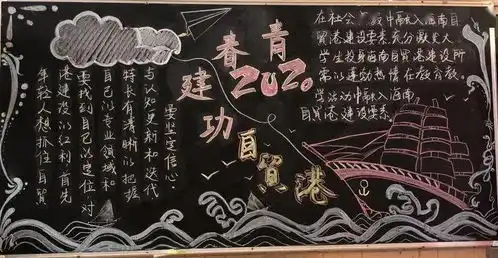 青春2020
建功
自贸港
年轻人想抓住自贸
港建设的红利首先
需找到自己的定位对
自己的专业领域和
特长有清晰的把握
与认知更新和迭代
要坚定信心
在社会中融入海南自
贸港建设要素充分激发大
学生投身海南自贸港建设所
热情在教育教
学活动中融入海南
自贸港建设要素